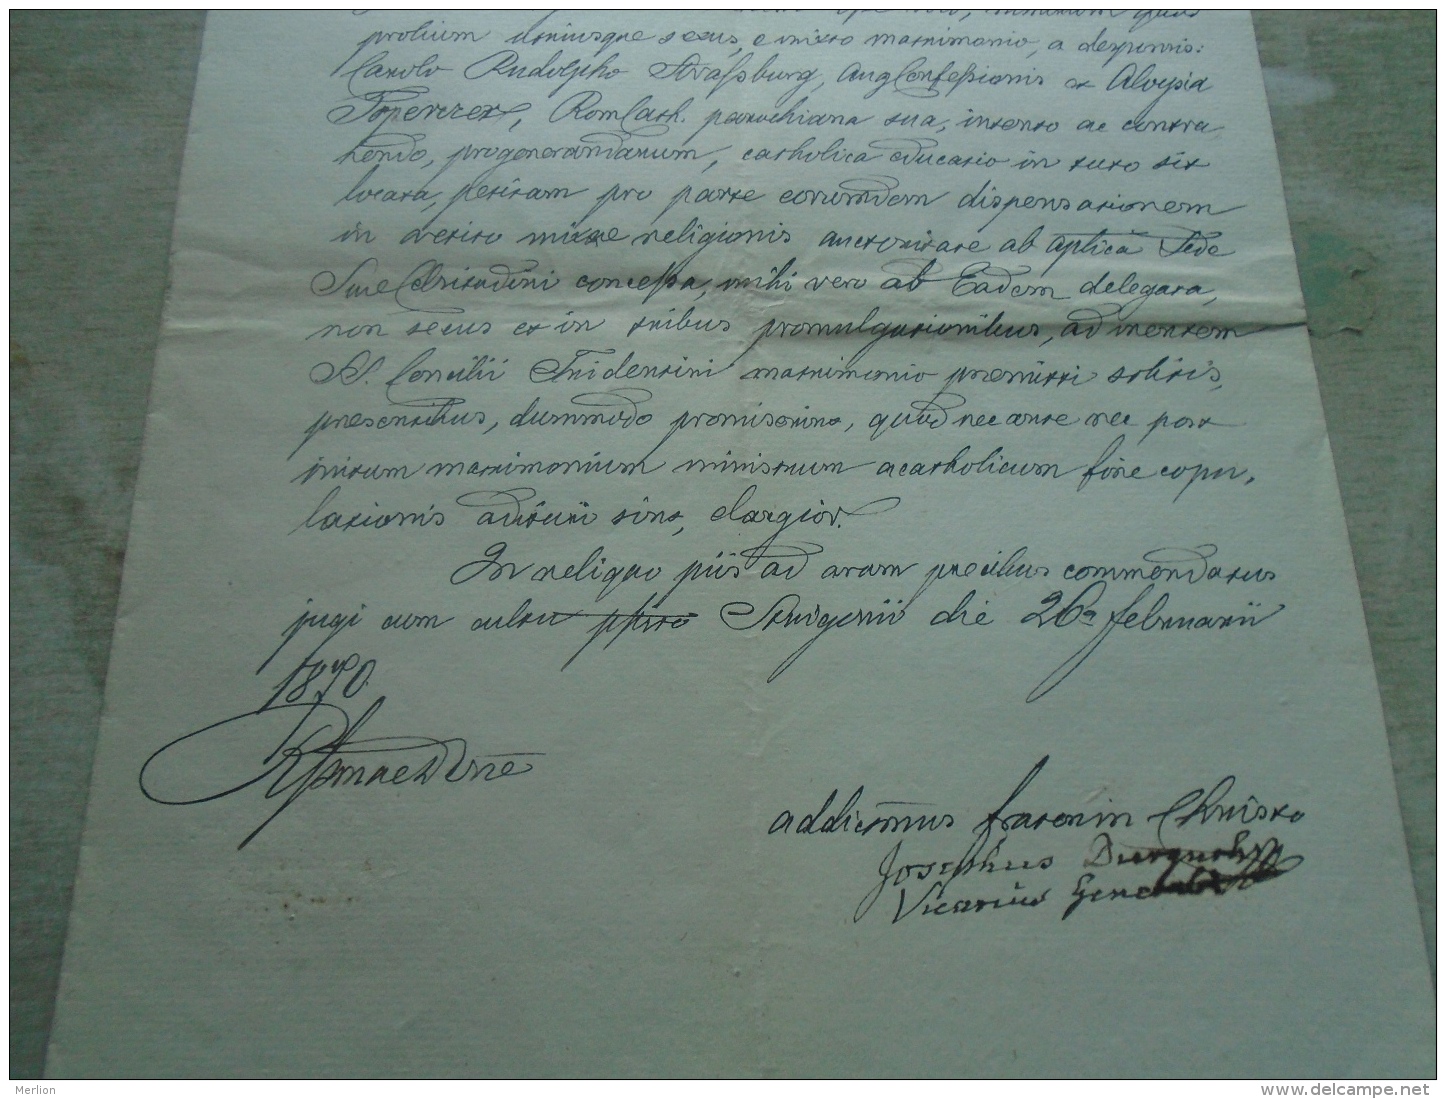 prolium utriusque sexus, e mixto matrimonio, a desponsis:
Carolo Rudolpho Straßburg, Aug. Confeßionis et Aloysia
Toperczer, Rom Cath. parochiana sua, intento ac contra
hendo, progenerandarum, catholica educatio in tuto sit
locata, petitam pro parte eorumdem dispensationem
in vetito mixtae religionis auctoritate ab aplica Sede
Suae Celsitudini conceßa, mihi vero ab Eadem delegata,
non secus et in tribus promulgationibus, ad mentem
S. Concilii Tridentini matrimonio praemitti solitis,
praesentibus, dummodo promiserint, quod nec ante nec post
initum matrimonium ministrum acatholicum fine copu,
lationis adituri sint, elargior.
In reliquo piis ad aram precibus commendatus
jugi cum cultu Strigonii die 26a februarii
1870.
addictmus frater in Christo
Josephus
Vicarius Generalis
Merlion
www.delcampe.net